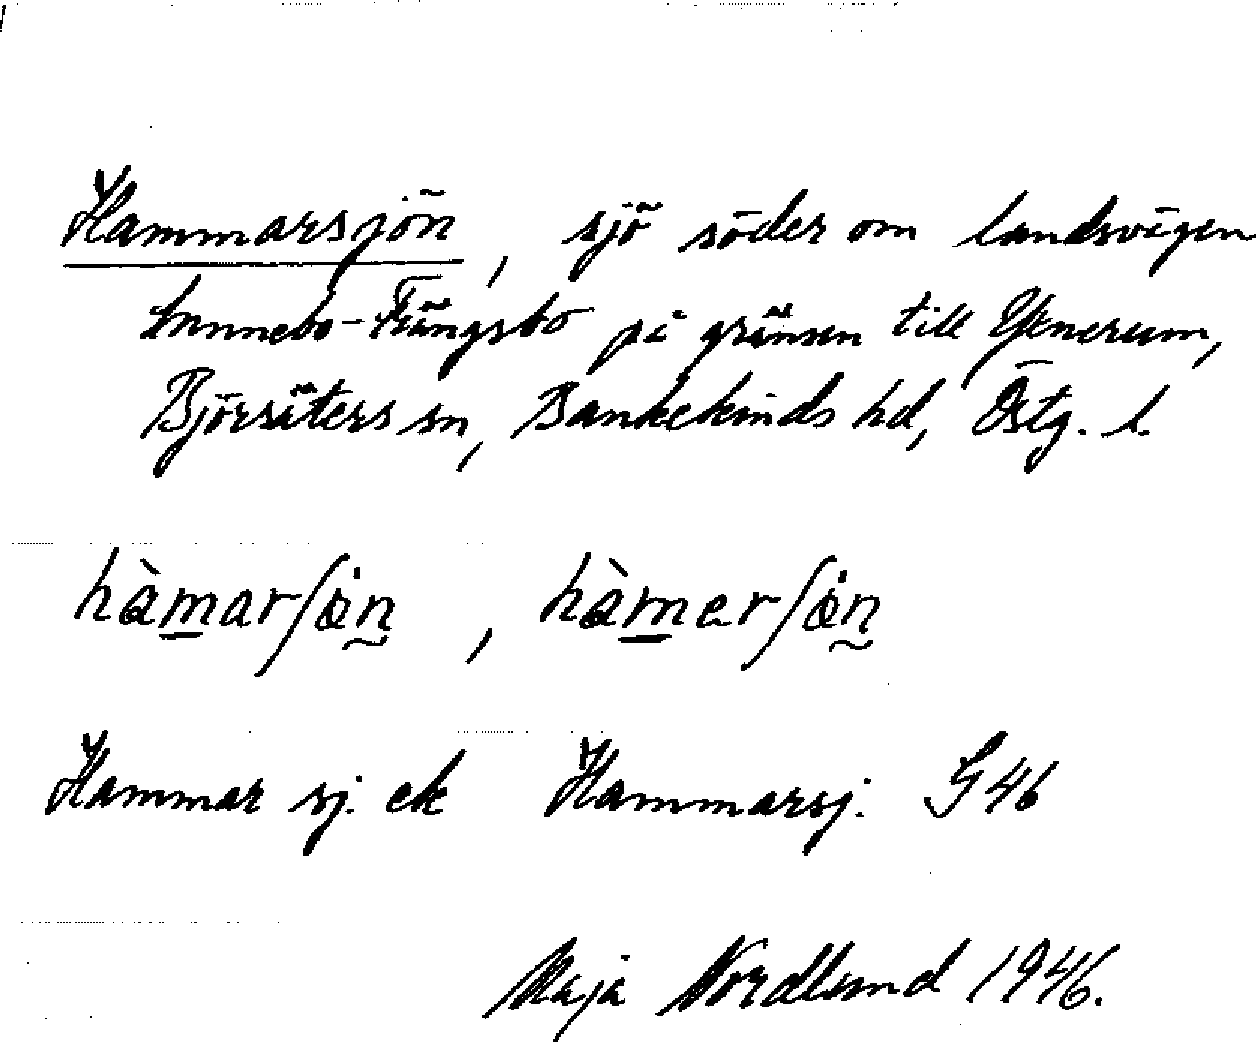 Hammarsjön, sjö söder om landsvägen
Sunnebo-Fängsbo på gränsen till Yxnerum,
Björsäters sn, Bankekinds hd, Östg. l.
hàmarʃön, hàmerʃön
Hammar sj. ek Hammarsj. G 46
Maja Nordlund 1946.